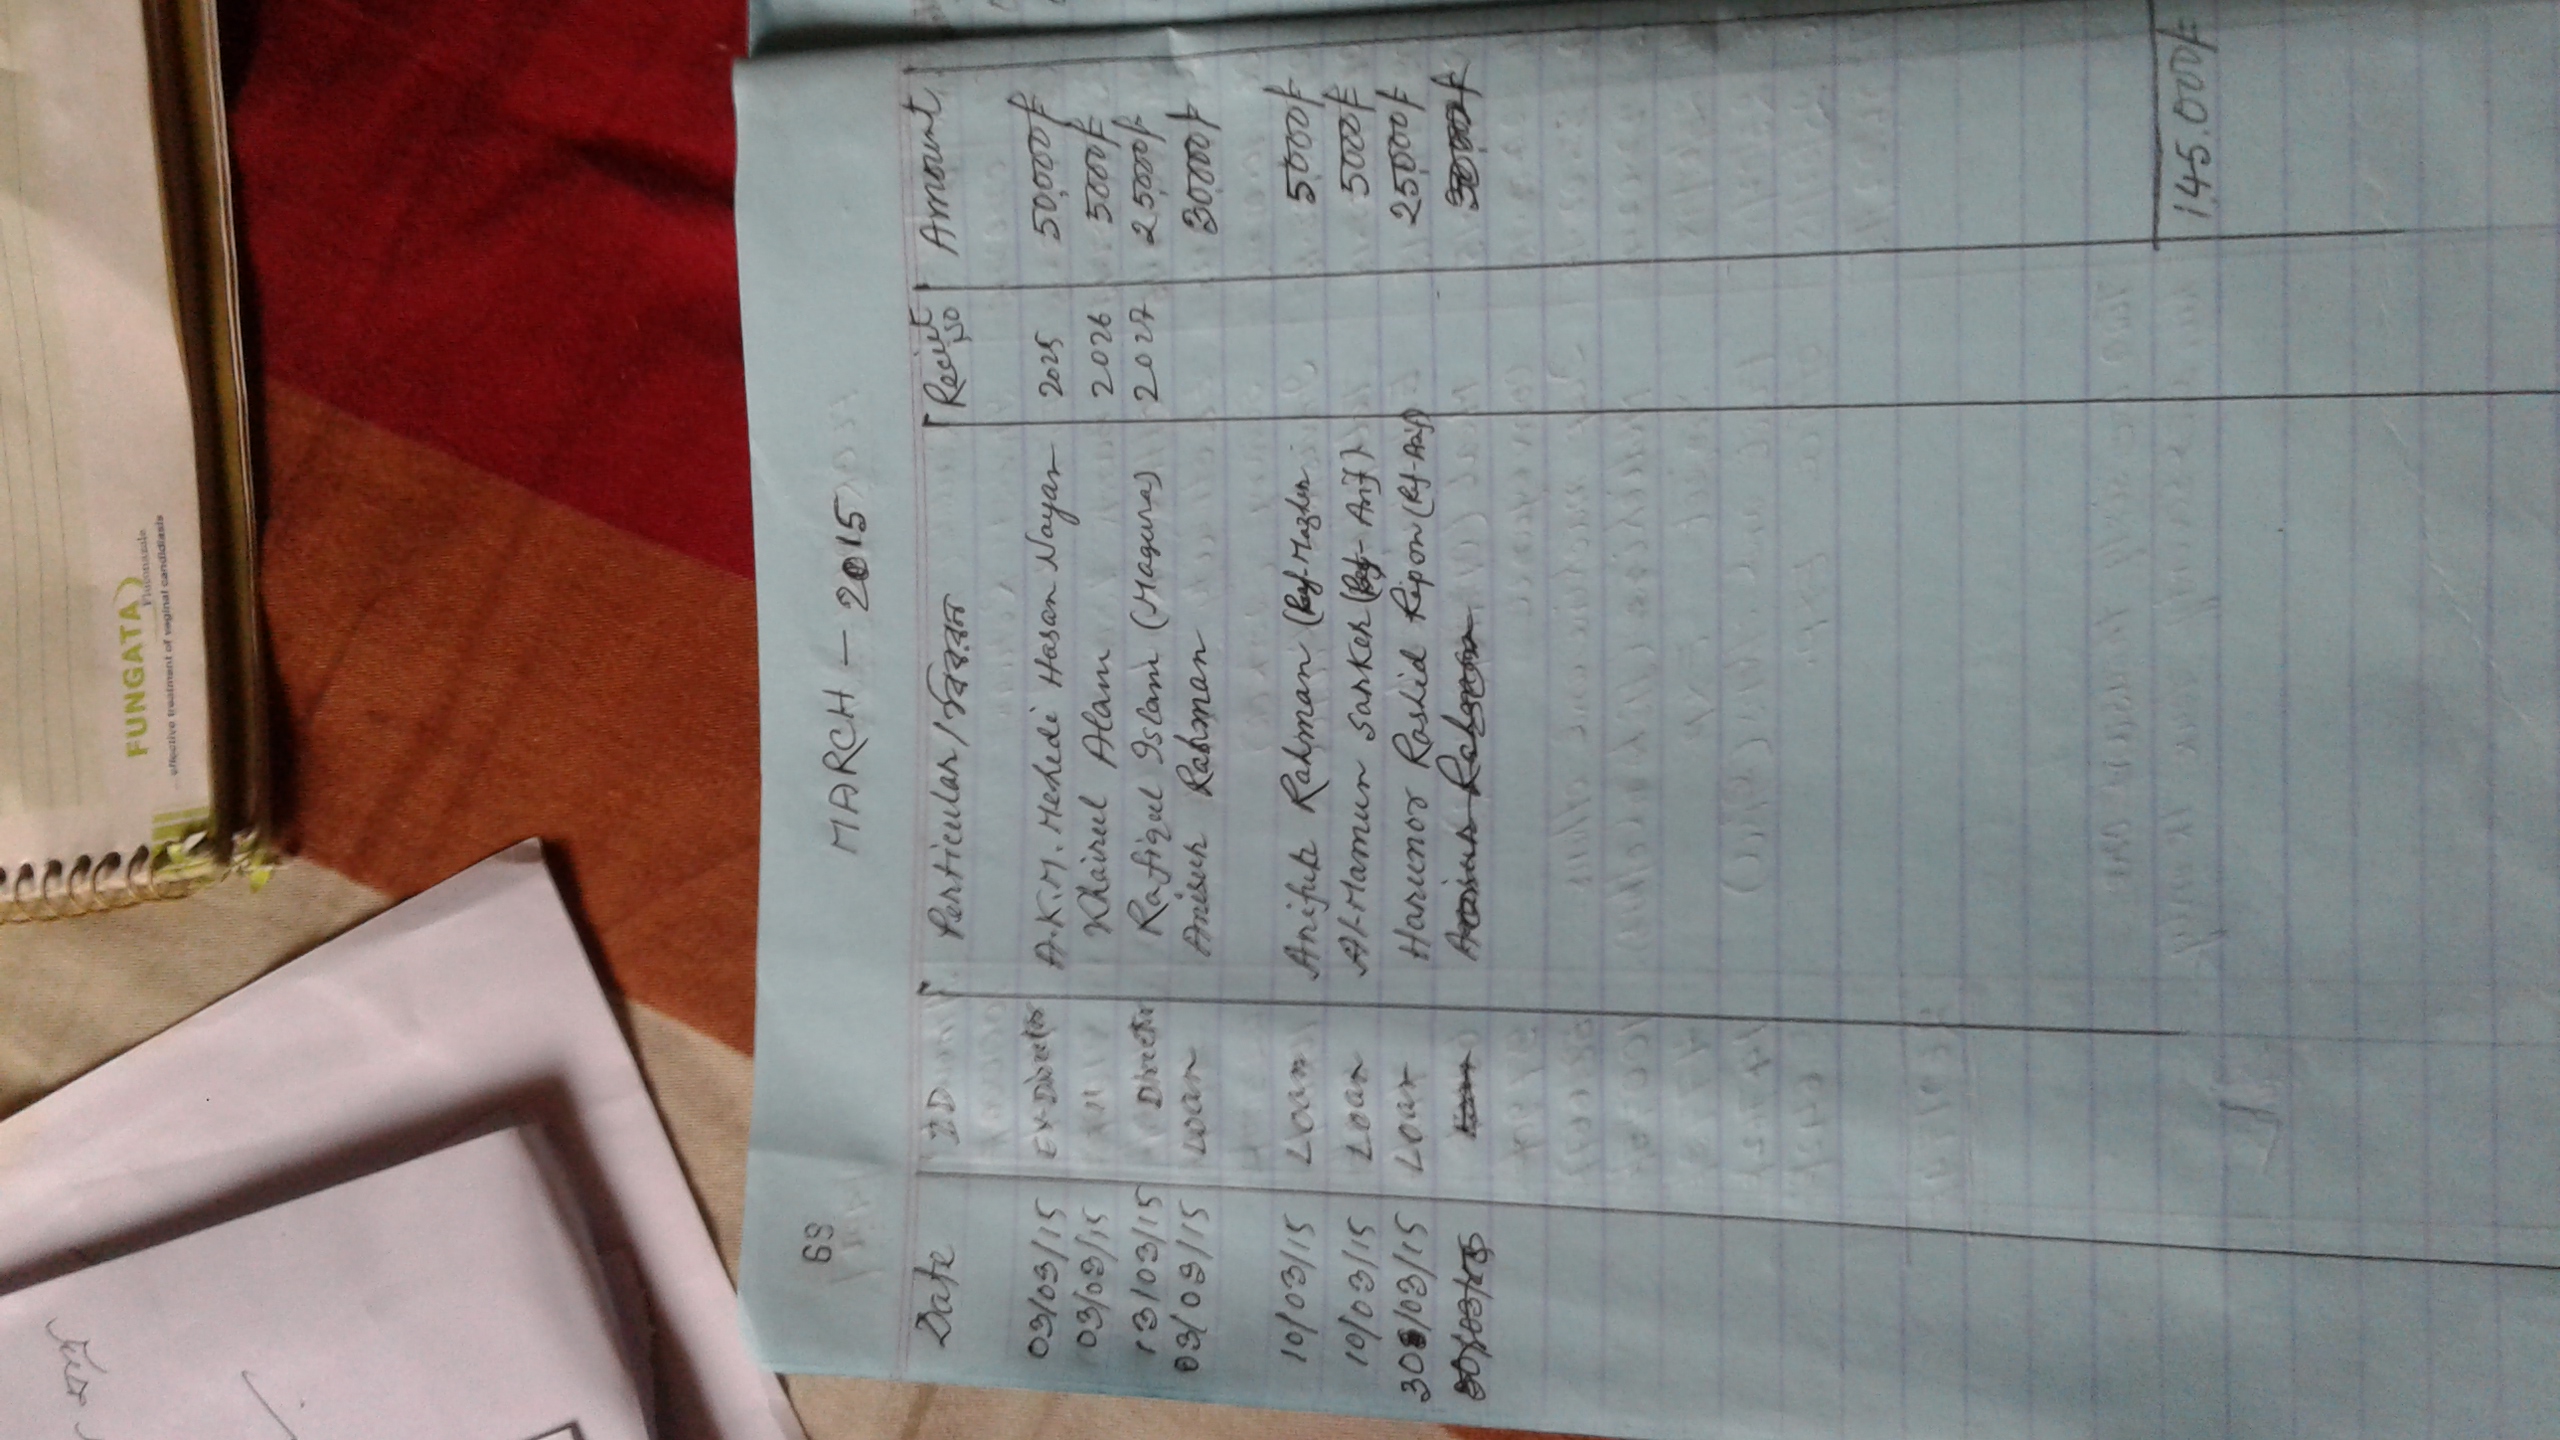 FUNGATA
Fluconazole
...effective treatment of vaginal candidiasis
69
MARCH - 2015
Date ID Perticular / বিবরন Reciet NO Amount
03/03/15 Ex-Director A.K.M. Mehedi Hasan Nayan 2025 50,000/-
03/03/15 " Khairul Alam 2026 5000/-
13/03/15 Director Rafiqul Islam (Magura) 2027 25,000/-
03/03/15 Loan Anisur Rahman 30,000/-
10/03/15 Loan Arifur Rahman (Ref-Mazher 5000/-
10/03/15 Loan Al-Mamun Sarker (Ref- Arif) 5000/-
30/03/15 Loan Harunor Rashid Ripon (Ref-Arif) 25,000/-
30/03/15 Loan Anisur Rahman 30,000/-
145.000/-